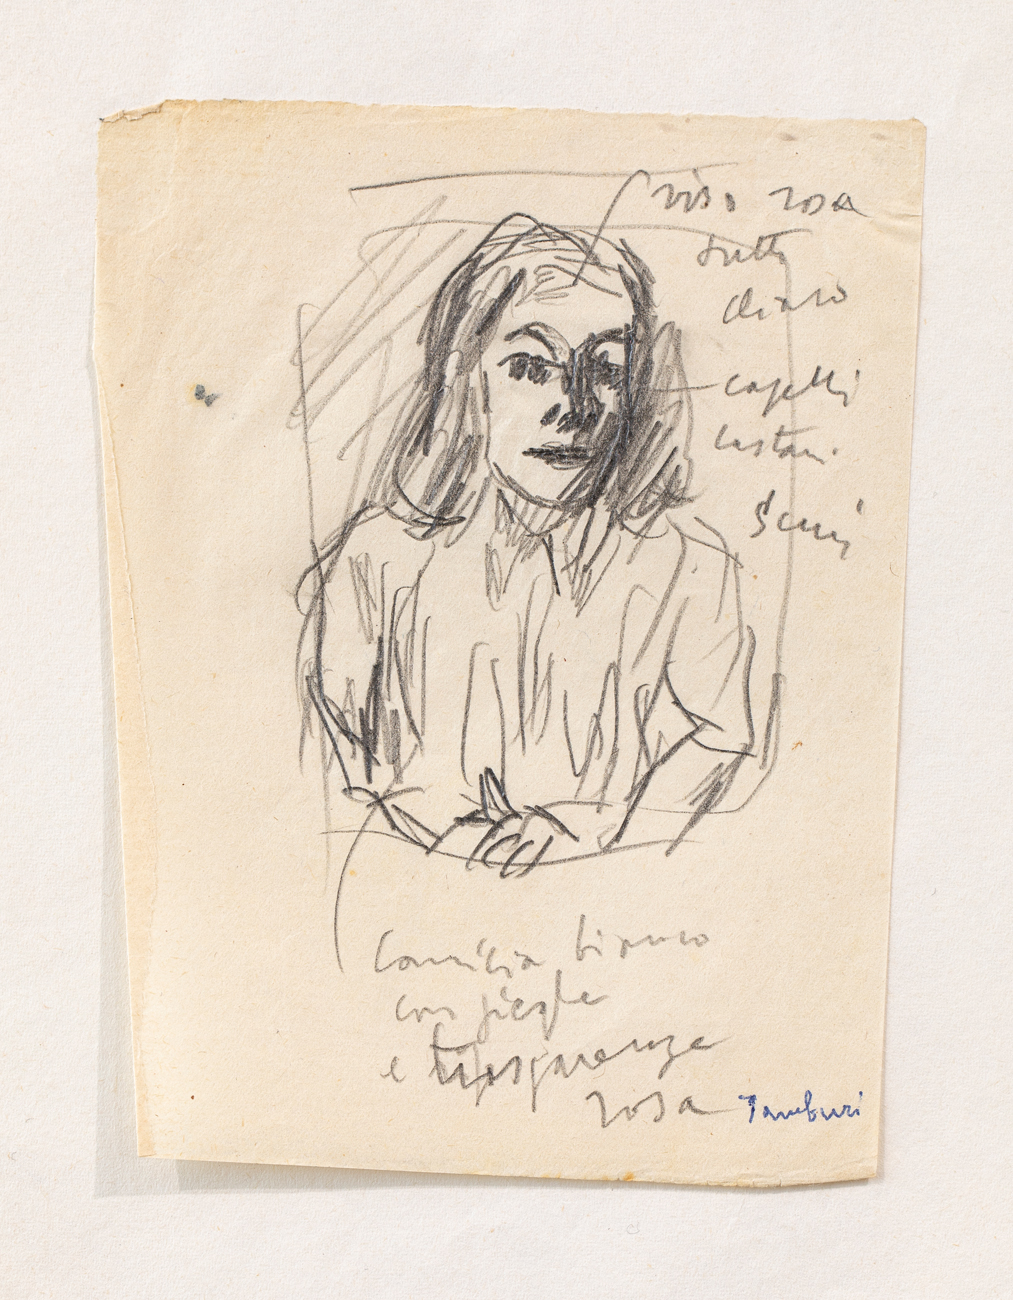 viso rosa
tutto
chiaro
capelli
castani
scuri
Camicia bianco
con pieghe
e trasparenze
rosa
Tamburi